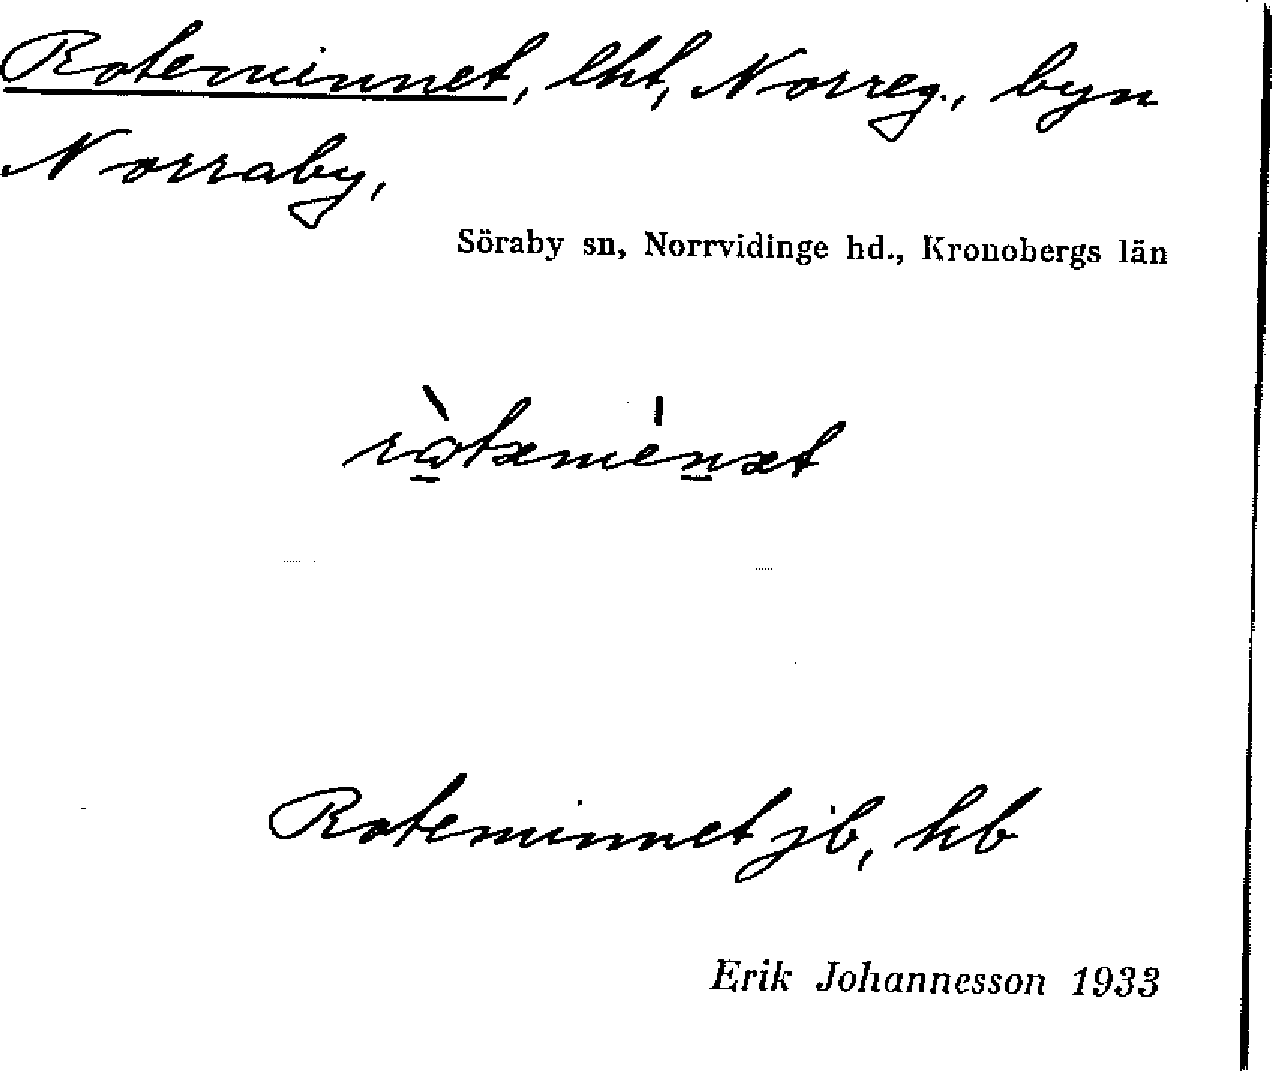 Roteminnet, lht, Norreg., byn
Norraby,
Söraby sn, Norrvidinge hd., Kronobergs län
Roteminnet jb, hb
Erik Johannesson 1933